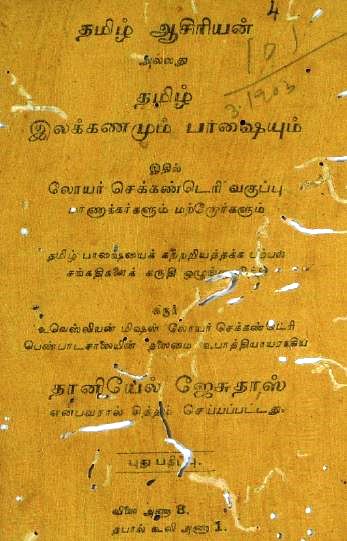 4
தமிழ் ஆசிரியன்
அல்லது
3.1903
தமிழ்
இலக்கணமும் பாஷையும்
இதில்
லோயர் செக்கண்டெரி வகுப்பு
மாணாக்கர்களும் மற்றோர்களும்
தமிழ் பாஷையைக் கற்றறியத்தக்க பற்பல
சங்கதிகளைக் கருதி
கரூர்
உவெஸ்லியன் மிஷன் லோயர் செக்கண்டெரி
பெண்பாடசாலையின் தலைமை உபாத்தியாயராகிய
தானியேல் ஜேசுதாஸ்
என்பவரால் சித்தஞ் செய்யப்பட்டது.
புது பதிப்பு.
விலை அணா 8.
தபால் கூலி அணா 1.